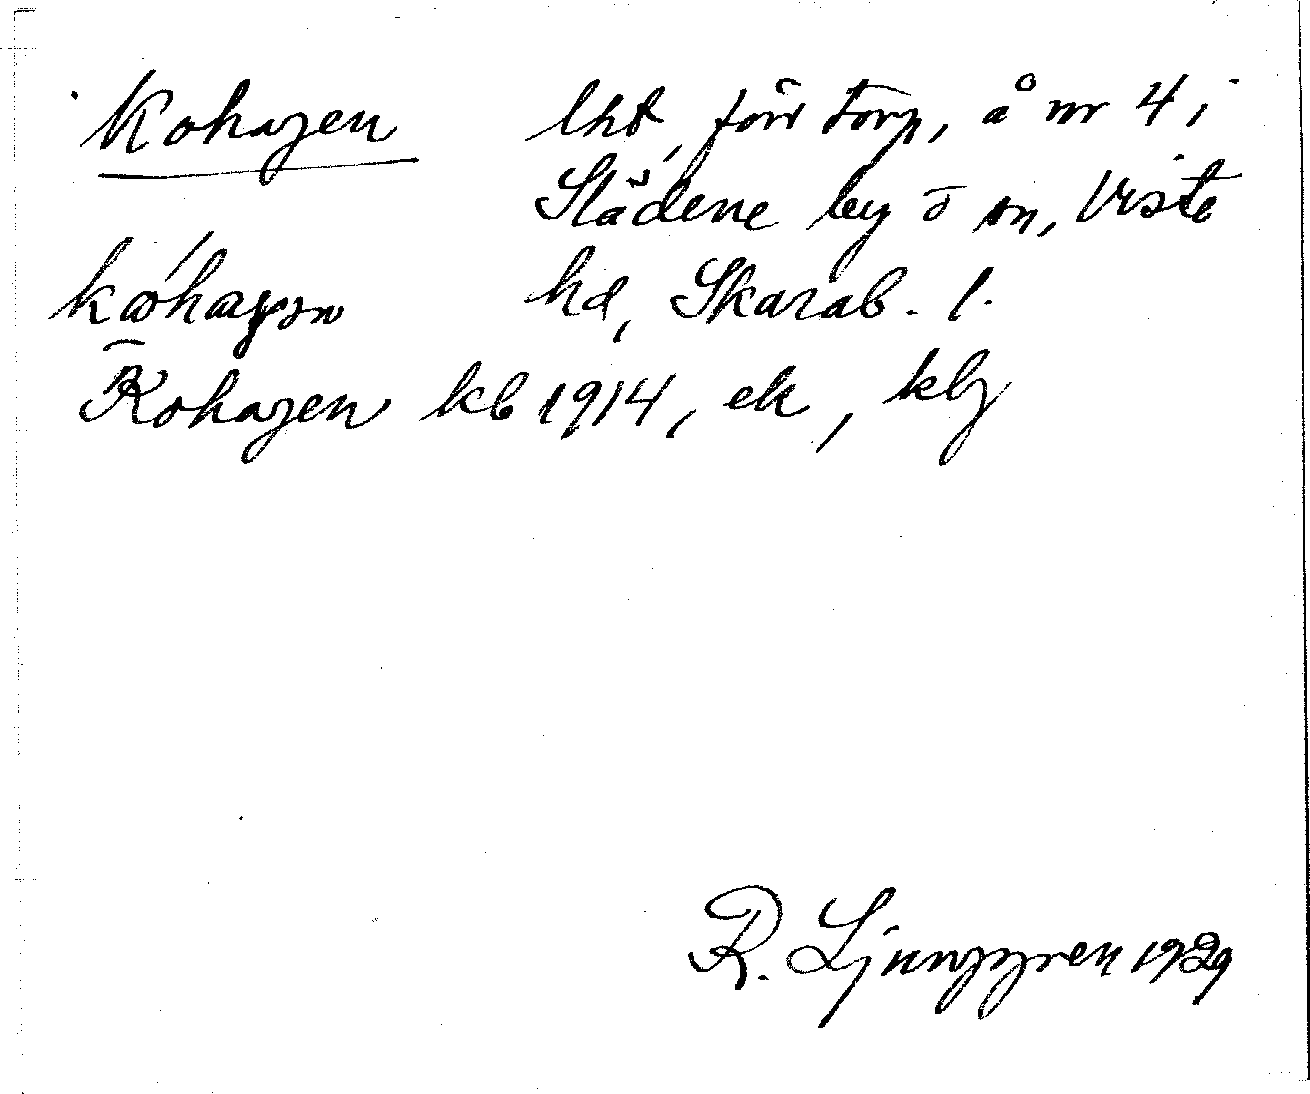 Kohagen lht, förr torp, å nr 4 i
Slädene by o sn, Viste
hd, Skarab. l.
Kohagen kb 1914, ek, kbg
R. Ljunggren 1929